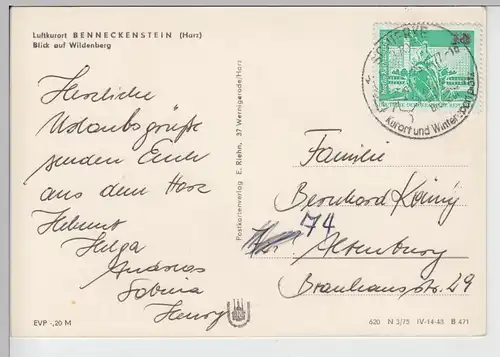 Luftkurort BENNECKENSTEIN (Harz)
Blick auf Wildenberg
Herzliche
Urlaubsgrüße
senden Euch
aus dem Harz
Helmut
Helga
Andreas
Sabina
Henry
EVP -,20 M
Postkartenverlag E. Riehn, 37 Wernigerode/Harz
SCHIERKE
Kurort und Wintersportplatz
Familie
Bernhard König
74
Altenburg
Brauhausstr. 29
620 N 3/75 IV-14-48 B 471